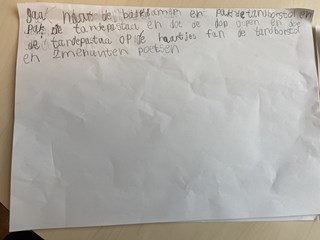 gaa naar de badkamer en pak de tandborstol en
pak de tandepastaa en doe de dop open en doe
de tandepastaa op de haartjes fan de tandborstol
en 2menuuten poetsen